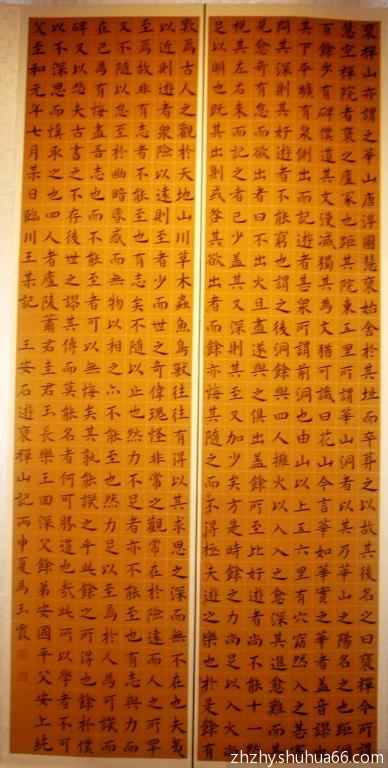 褒禪山亦謂之華山唐浮圖慧褒始舍於其址而卒葬之以故其後名之曰褒禪今所謂
慧空禪院者褒之廬冢也距其院東五里所謂華山洞者以其乃華山之陽名之也距洞
百餘步有碑僕道其文漫滅獨其為文猶可識曰花山今言華如華實之華者蓋音謬也
其下平曠有泉側出而記遊者甚眾所謂前洞也由山以上五六里有穴窈然入之甚寒
問其深則其好遊者不能窮也謂之後洞餘與四人擁火以入入之愈深其進愈難而其
見愈奇有怠而欲出者曰不出火且盡遂與之俱出蓋餘所至比好遊者尚不能十一然
視其左右來而記之者已少蓋其又深則其至又加少矣方是時餘之力尚足以入火尚
足以明也既其出則或咎其欲出者而餘亦悔其隨之而不得極夫遊之樂也於是餘有
歎焉古人之觀於天地山川草木蟲魚鳥獸往往有得以其求思之深而無不在也夫夷
以近則遊者眾險以遠則至者少而世之奇偉瑰怪非常之觀常在於險遠而人之所罕
至焉故非有志者不能至也有志矣不隨以止也然力不足者亦不能至也有志與力而
又不隨以怠至於幽暗昏惑而無物以相之亦不能至也然力足以至焉於人為可譏而
在己為有悔盡吾志也而不能至者可以無悔矣其孰能譏之乎此餘之所得也餘於僕
碑又以悲夫古書之不存後世之謬其傳而莫能名者何可勝道也哉此所以學者不可
以不深思而慎取之也四人者廬陵蕭君圭君玉長樂王回深父餘弟安國平父安上純
父至和元年七月某日臨川王某記 王安石遊褒禪山記丙申夏馬玉霞
zhzhy.shuhua66.com